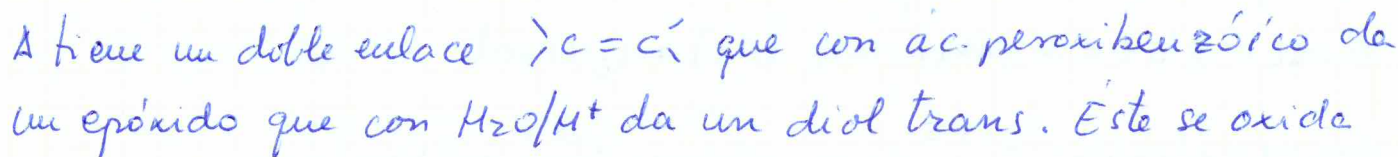 A tiene un doble enlace >C=C< que con ác. peroxibenzóico da
un epóxido que con H2O/H+ da un diol trans. Este se oxida